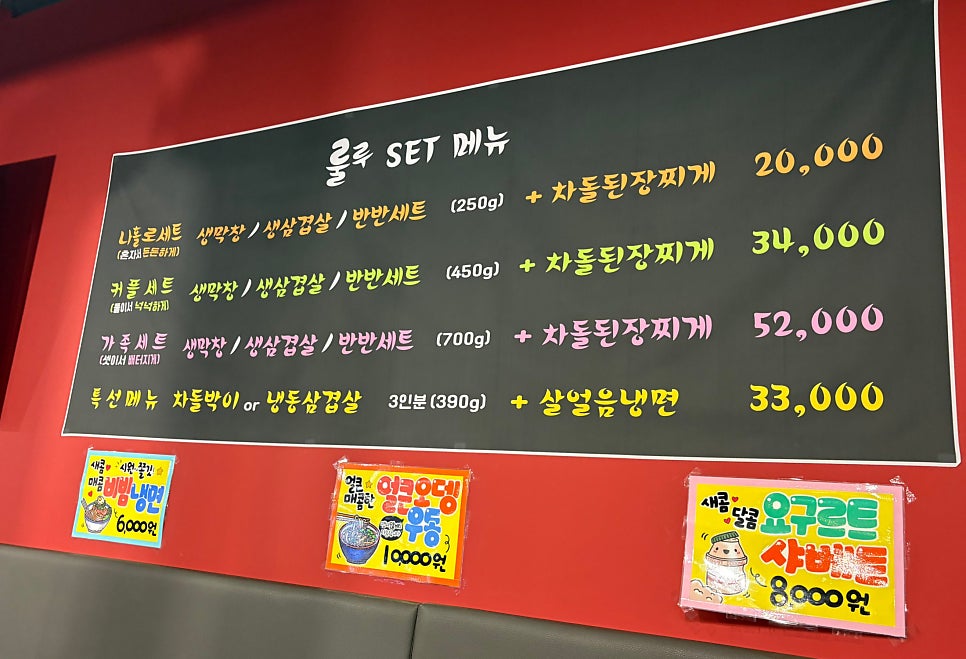 룰루 SET 메뉴
나홀로세트 생막창 / 생삼겹살 / 반반세트 (250g) + 차돌된장찌게 20,000
(혼자서 든든하게)
커플세트 생막창 / 생삼겹살 / 반반세트 (450g) + 차돌된장찌게 34,000
(둘이서 넉넉하게)
가족세트 생막창 / 생삼겹살 / 반반세트 (700g) + 차돌된장찌게 52,000
(셋이서 배터지게)
특선메뉴 차돌박이 or 냉동삼겹살 3인분 (390g) + 살얼음냉면 33,000
새콤 매콤
시원 깔끔
비빔냉면
6,000원
얼큰 매콤한
얼큰오뎅
우동
10,000원
새콤 달콤
요구르트
샤베트
8,000원